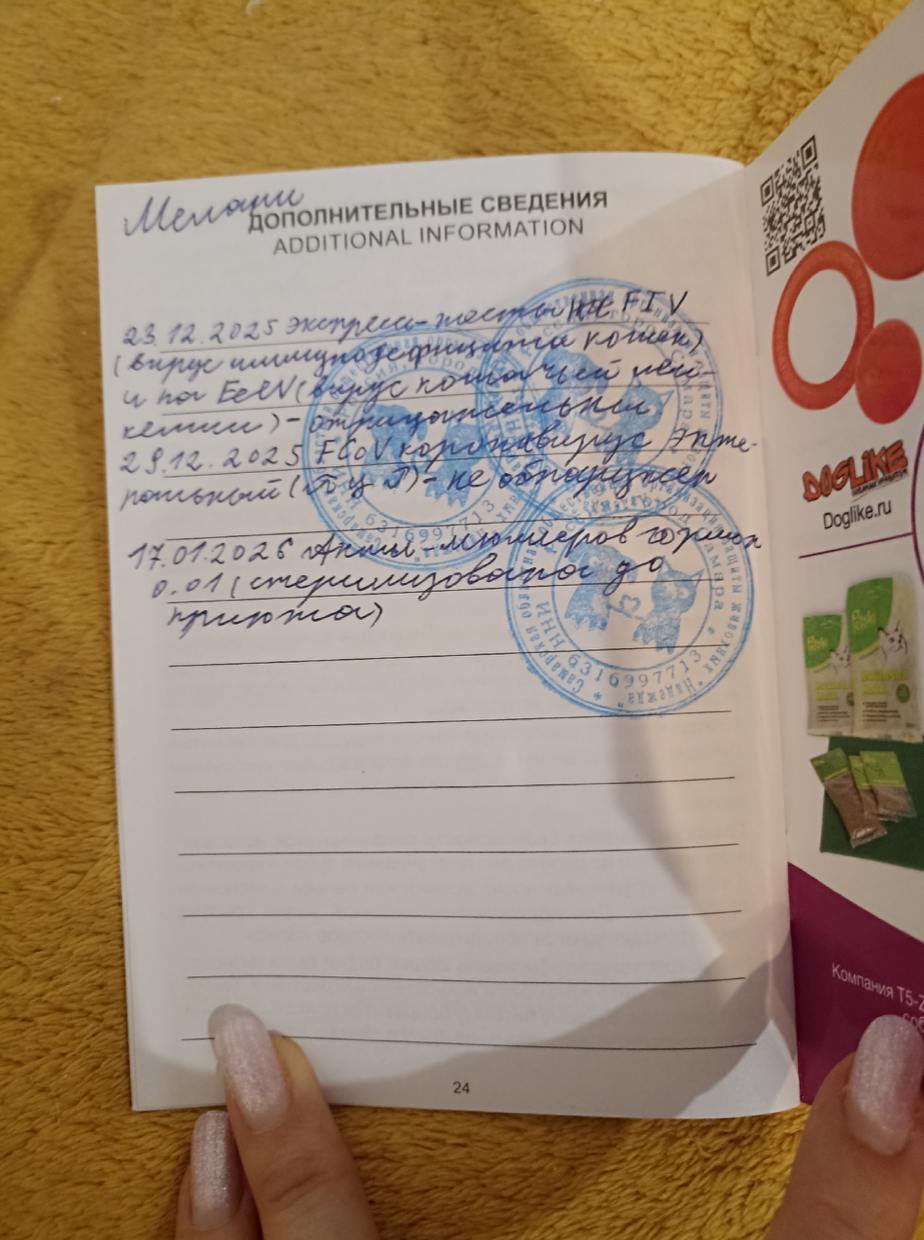 Мелани
ДОПОЛНИТЕЛЬНЫЕ СВЕДЕНИЯ
ADDITIONAL INFORMATION
23.12.2025 Экспресс-тесты на FIV
(вирус иммунодефицита кошек)
и на FeLV (вирус кошачьей лей-
кемии) - отрицательный
29.12.2025 FCoV коронавирус Энте-
ральный (ПЦР) - не обнаружен
17.01.2026 Анти-мюллеров гормон
0.01 (стерилизована до
приюта)
Самарская
защиты животных "Надежда"
ИНН 6316997713
24
DOGLIKE
Doglike.ru
Компания Т5-